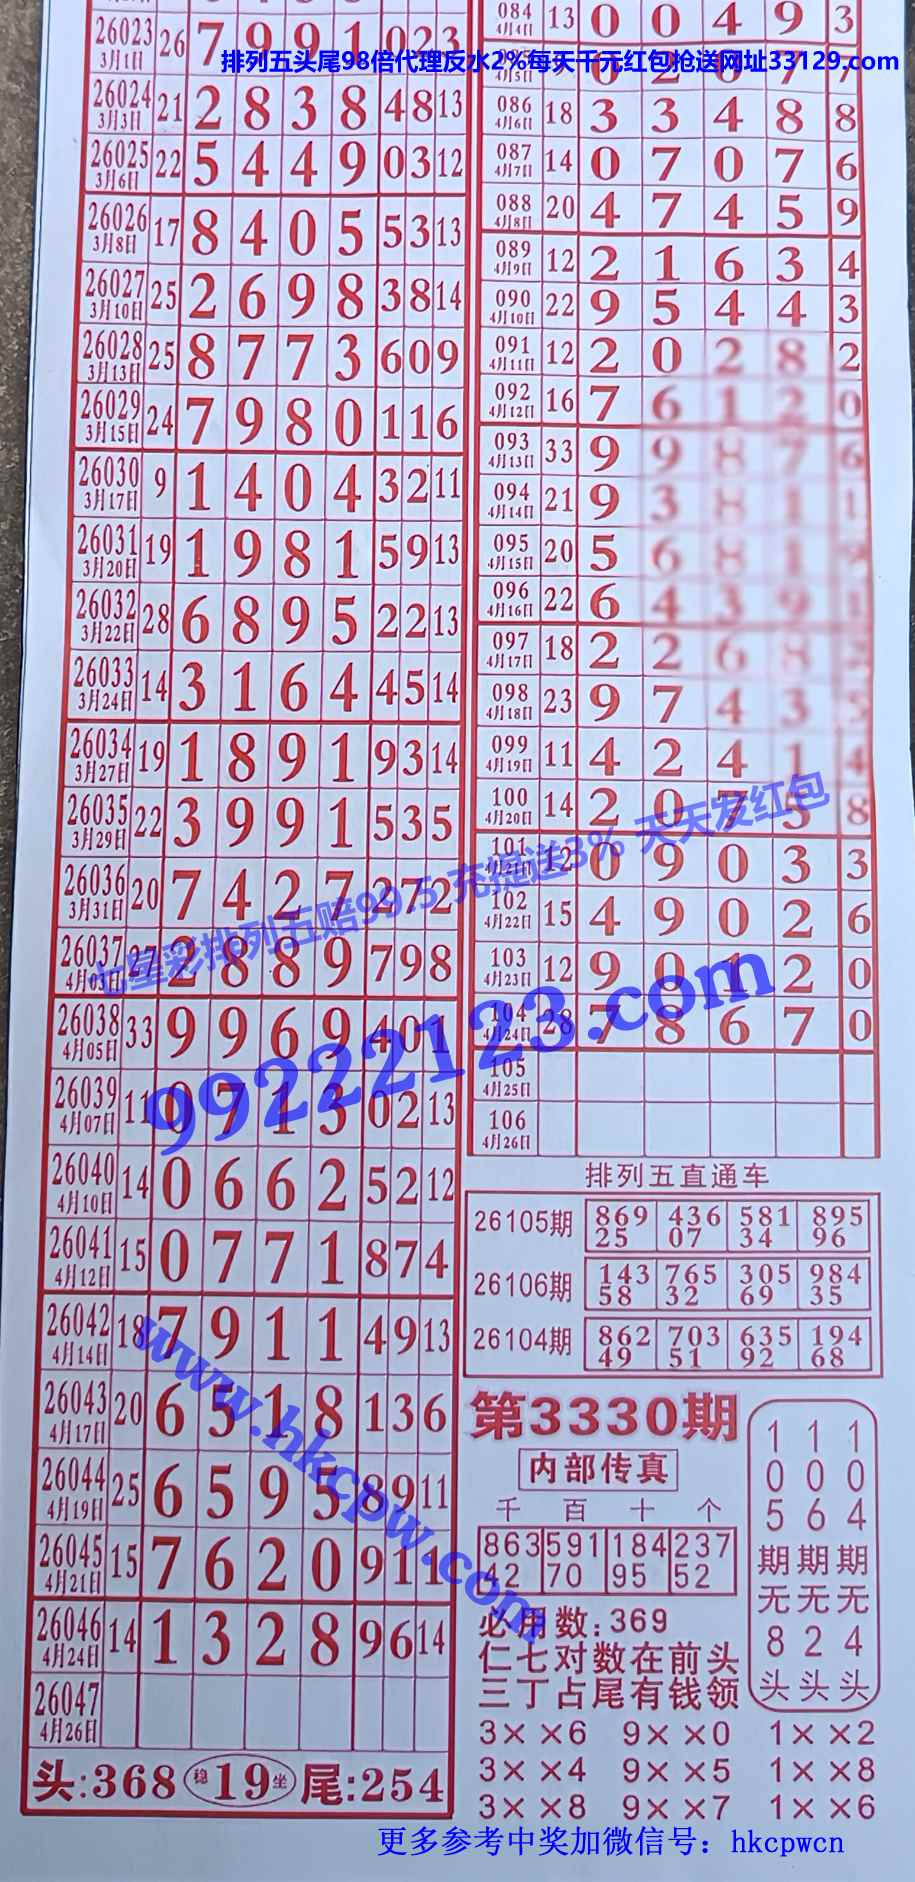 排列五头尾98倍代理反水2%每天千元红包抢送网址33129.com
26023 3月1日 26 7 9 9 1 0 2 3
26024 3月3日 21 2 8 3 8 4 8 13
26025 3月6日 22 5 4 4 9 0 3 12
26026 3月8日 17 8 4 0 5 5 3 13
26027 3月10日 25 2 6 9 8 3 8 14
26028 3月13日 25 8 7 7 3 6 0 9
26029 3月15日 24 7 9 8 0 1 1 6
26030 3月17日 9 1 4 0 4 3 2 11
26031 3月20日 19 1 9 8 1 5 9 13
26032 3月22日 28 6 8 9 5 2 2 13
26033 3月24日 14 3 1 6 4 4 5 14
26034 3月27日 19 1 8 9 1 9 3 14
26035 3月29日 22 3 9 9 1 5 3 5
26036 3月31日 20 7 4 2 7 2 7 2
26037 4月03日 27 2 8 8 9 7 9 8
26038 4月05日 33 9 9 6 9 4 0 1
26039 4月07日 11 0 7 1 3 0 2 13
26040 4月10日 14 0 6 6 2 5 2 12
26041 4月12日 15 0 7 7 1 8 7 4
26042 4月14日 18 7 9 1 1 4 9 13
26043 4月17日 20 6 5 1 8 1 3 6
26044 4月19日 25 6 5 9 5 8 9 11
26045 4月21日 15 7 6 2 0 9 1 1
26046 4月24日 14 1 3 2 8 9 6 14
26047 4月26日
头:368 稳19坐 尾:254
084 4月4日 13 0 0 4 9 3
4月5日 0 2 7 7
086 4月6日 18 3 3 4 8 8
087 4月7日 14 0 7 0 7 6
088 4月8日 20 4 7 4 5 9
089 4月9日 12 2 1 6 3 4
090 4月10日 22 9 5 4 4 3
091 4月11日 12 2 0 2 8 2
092 4月12日 16 7 6 1 2 0
093 4月13日 33 9 9 8 7 6
094 4月14日 21 9 3 8 1 1
095 4月15日 20 5 6 8 1
096 4月16日 22 6 4 3 9 1
097 4月17日 18 2 2 6 8 2
098 4月18日 23 9 7 4 3 5
099 4月19日 11 4 2 4 1 4
100 4月20日 14 2 0 7 5 8
101 4月21日 12 0 9 0 3 3
102 4月22日 15 4 9 0 2 6
103 4月23日 12 9 0 1 2 0
104 4月24日 28 7 8 6 7 0
105 4月25日
106 4月26日
七星彩排列五赔99.5 充提送3% 天天发红包
99222123.com
www.hkcpw.com
排列五直通车
26105期 86925 43607 58134 89596
26106期 14358 76532 30569 98435
26104期 86249 70351 63592 19468
第3330期
内部传真
千 百 十 个
863 591 184 237
42 70 95 52
必用数:369
仁七对数在前头
三丁占尾有钱领
3××6 9××0 1××2
3××4 9××5 1××8
3××8 9××7 1××6
105期无8头
106期无2头
104期无4头
更多参考中奖加微信号：hkcpwcn